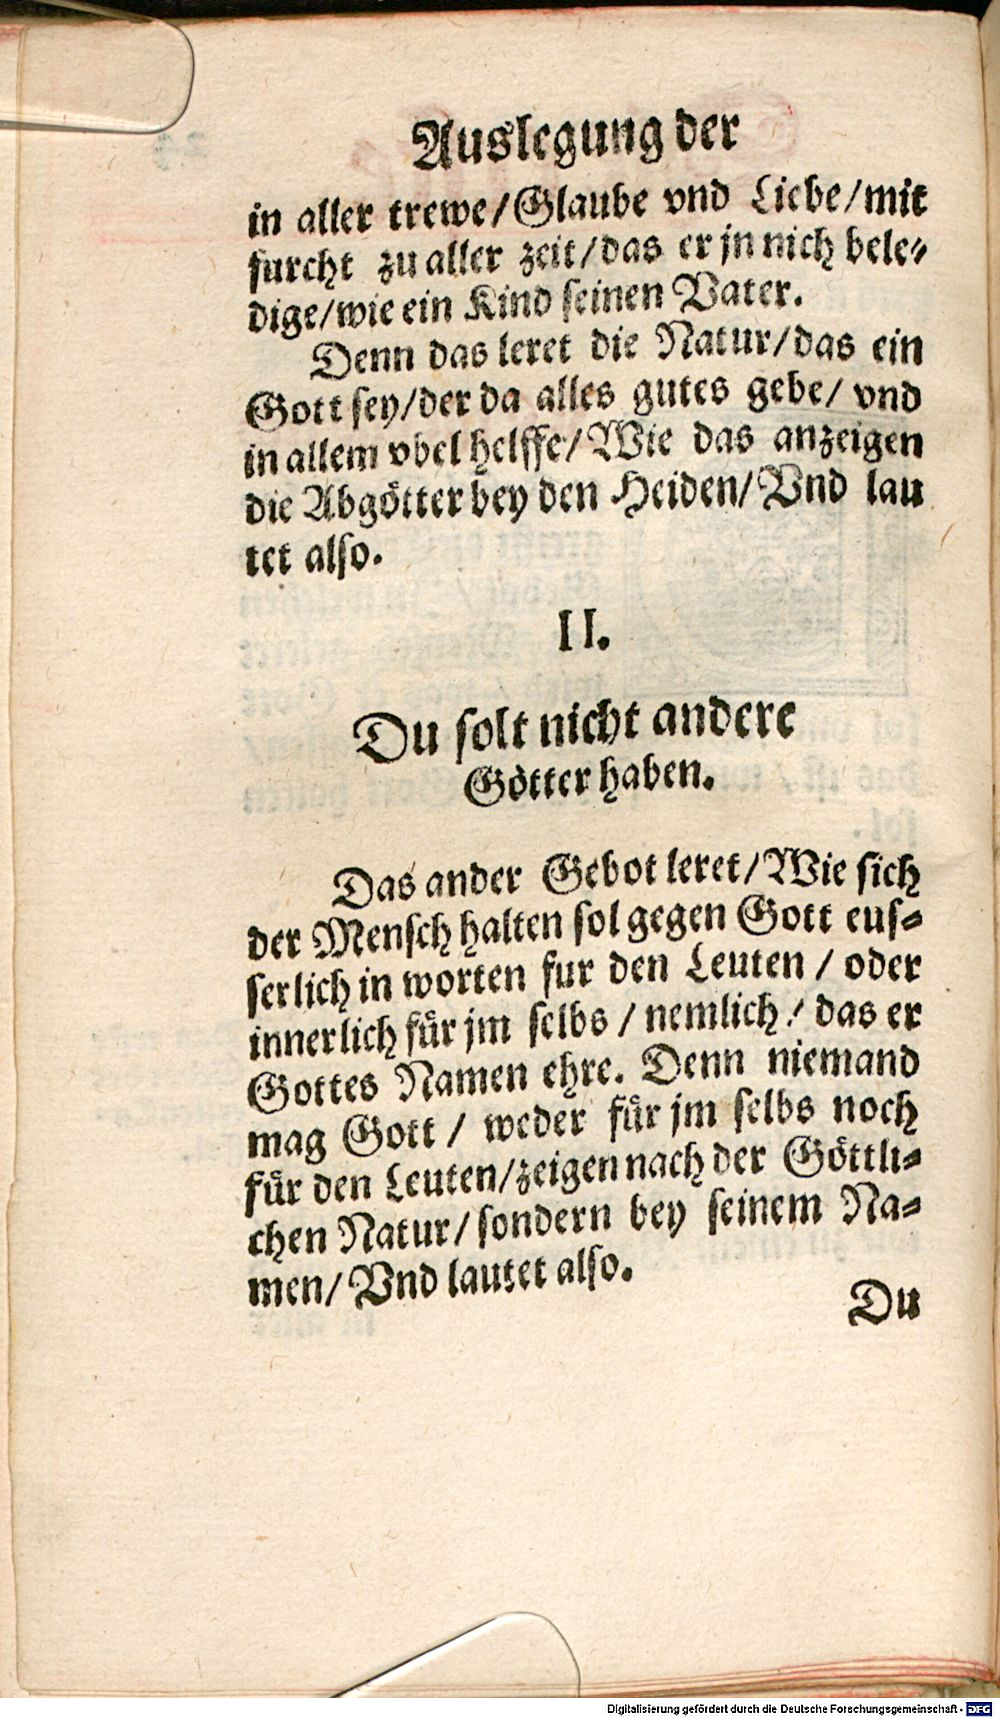 Auslegung der
in aller trewe/Glaube vnd Liebe/mit
furcht zu aller zeit/das er jn nich bele⸗
dige/wie ein Kind seinen Vater.
Denn das leret die Natur/das ein
Gott sey/der da alles gutes gebe/ vnd
in allem vbel helffe/Wie das anzeigen
die Abgötter bey den Heiden/Vnd lau
tet also.
II.
Du solt nicht andere
Götter haben.
Das ander Gebot leret/Wie sich
der Mensch halten sol gegen Gott eus⸗
serlich in worten fur den Leuten / oder
innerlich für jm selbs / nemlich / das er
Gottes Namen ehre. Denn niemand
mag Gott / weder für jm selbs noch
für den Leuten/zeigen nach der Göttli⸗
chen Natur/ sondern bey seinem Na⸗
men/ Vnd lautet also.
Du
Digitalisierung gefördert durch die Deutsche Forschungsgemeinschaft - DFG